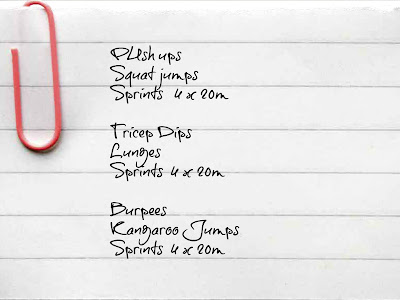 Push ups
Squat jumps
Sprints 4 x 20m
Tricep Dips
Lunges
Sprints 4 x 20m
Burpees
Kangaroo Jumps
Sprints 4 x 20m